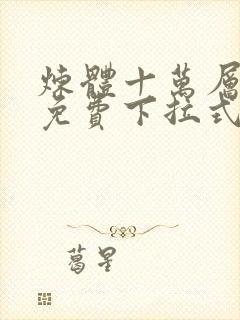 煉體十萬層
免費下拉式
葛星